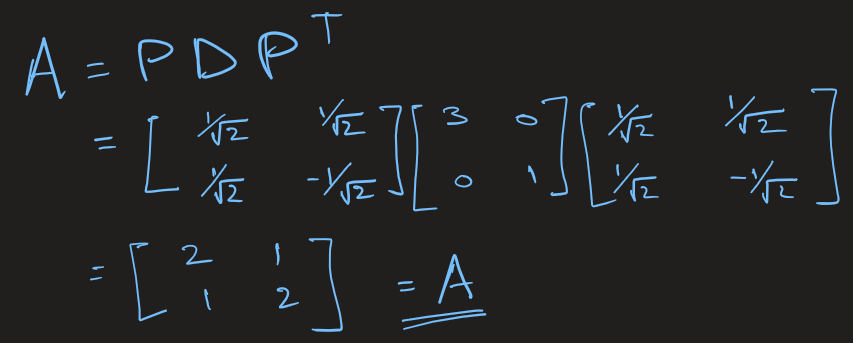 A = P D P^T
= [ 1/√2 1/√2 ; 1/√2 -1/√2 ] [ 3 0 ; 0 1 ] [ 1/√2 1/√2 ; 1/√2 -1/√2 ]
= [ 2 1 ; 1 2 ] = A